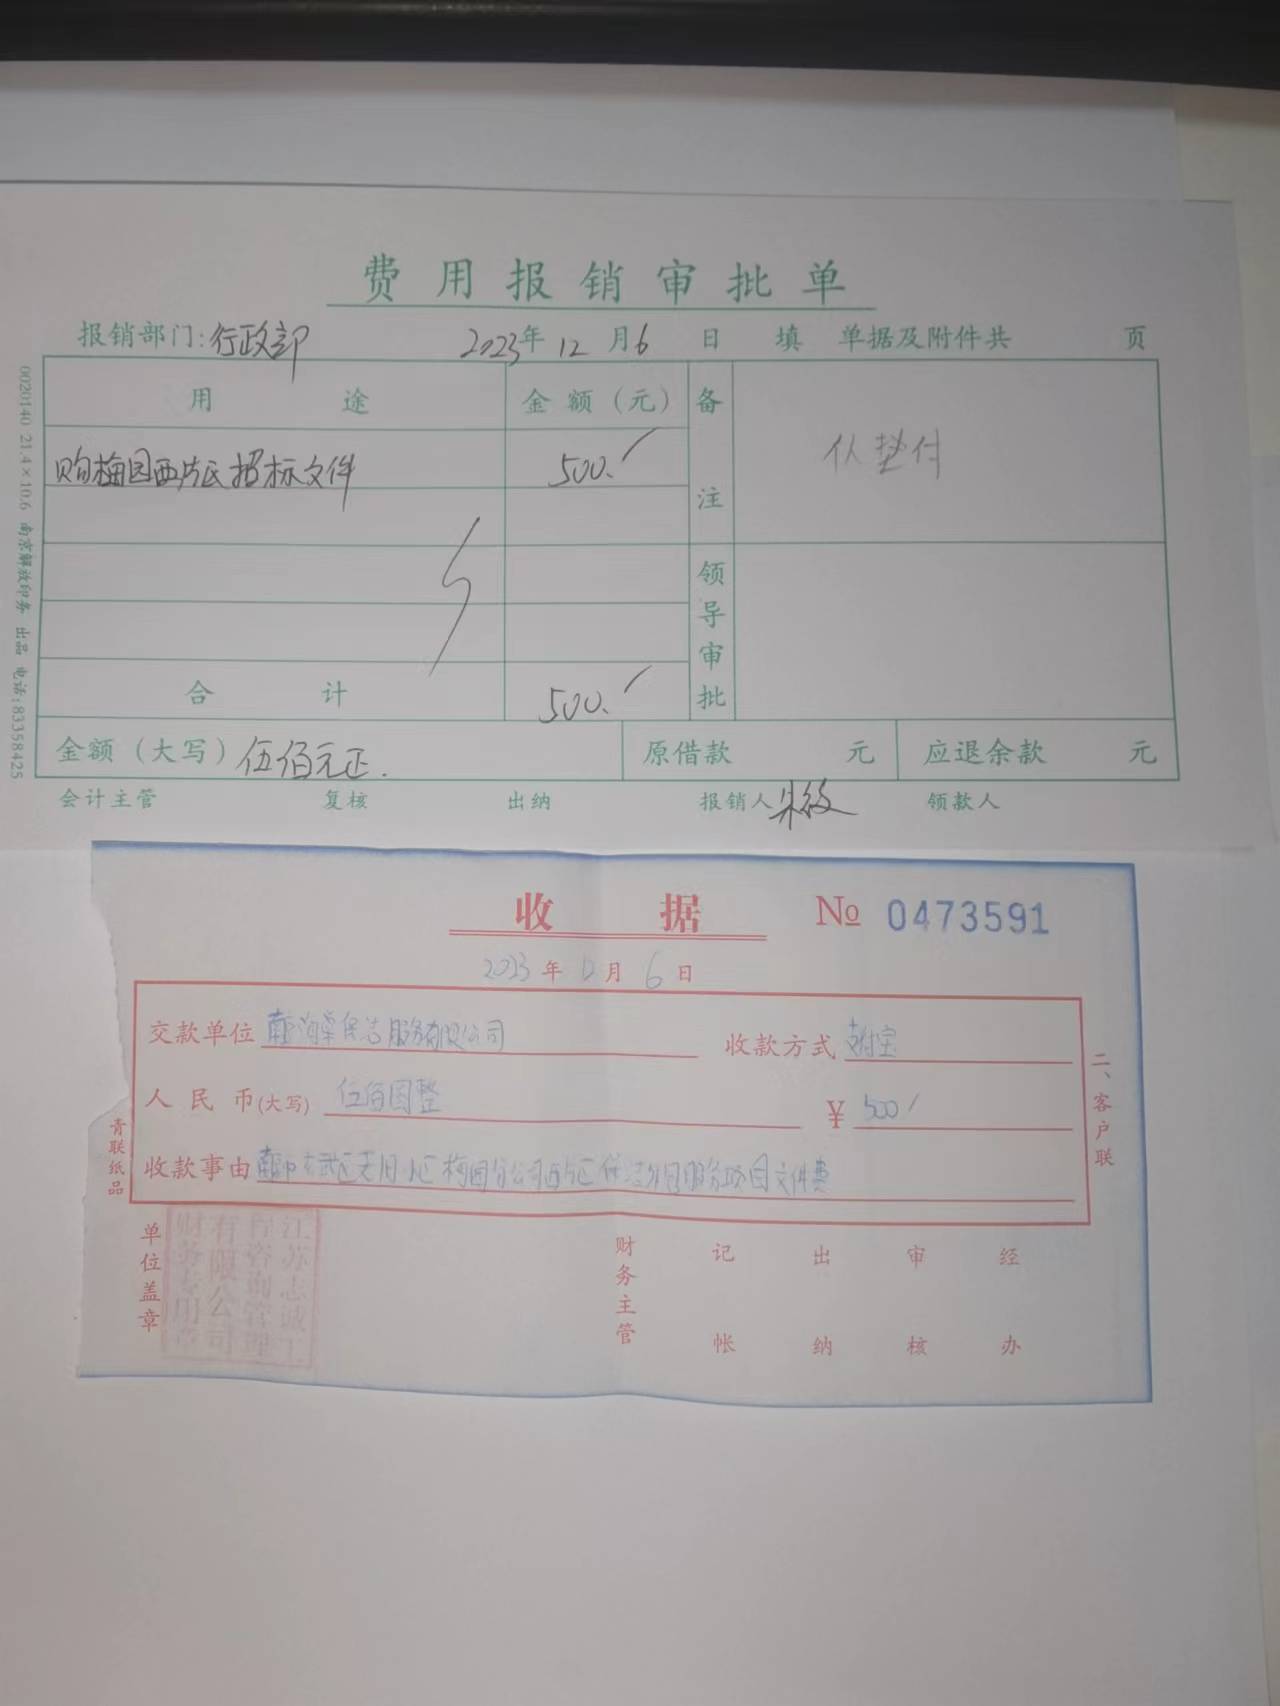 费用报销审批单
报销部门:行政部 2023年12月6日 填 单据及附件共 页
用途 金额(元) 备注
购梅园西片区招标文件 500.
垫付
领导审批
合计 500.
金额(大写)伍佰元正. 原借款 元 应退余款 元
会计主管 复核 出纳 报销人 朱 领款人
0020140 21.4×10.6 南京解放印务 出品 电话:83358425
收据 No 0473591
2023年12月6日
交款单位 保洁服务有限公司 收款方式 支付宝
人民币(大写) 伍佰圆整 ¥ 500
收款事由 梅园分公司西片区保洁外包服务项目文件费
二、客户联
青联纸品
单位盖章 财务主管 记帐 出纳 审核 经办
江苏志诚工
程咨询管理
有限公司
财务专用章